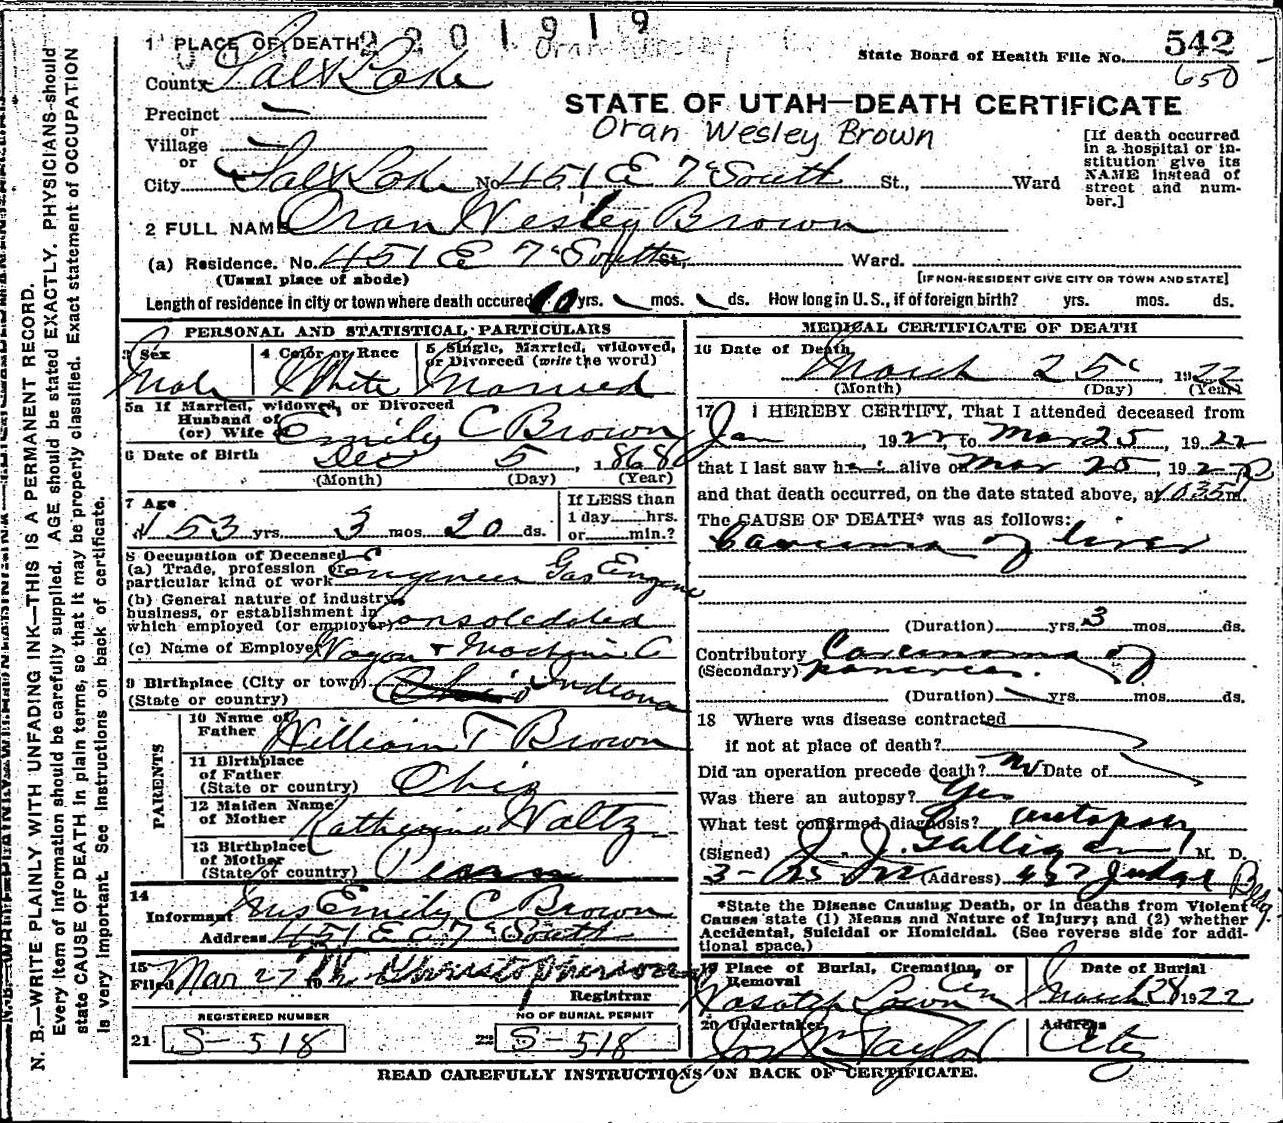 2201919
Oran Wesley
1 PLACE OF DEATH
State Board of Health File No. 542
650
County Salt Lake
STATE OF UTAH—DEATH CERTIFICATE
Precinct —
or
Oran Wesley Brown
Village
or
[If death occurred in a hospital or institution give its NAME instead of street and number.]
City Salt Lake No 451 E 7" South St., Ward
2 FULL NAME Oran Wesley Brown
(a) Residence. No. 451 E 7" South St., Ward.
(Usual place of abode) [IF NON-RESIDENT GIVE CITY OR TOWN AND STATE]
Length of residence in city or town where death occured 10 yrs. mos. ds. How long in U. S., if of foreign birth? yrs. mos. ds.
PERSONAL AND STATISTICAL PARTICULARS
3 Sex
Male
4 Color or Race
White
5 Single, Married, widowed,
or Divorced (write the word)
Married
5a If Married, widowed, or Divorced
Husband of
(or) Wife of Emily C Brown
6 Date of Birth Dec 5, 1868
(Month) (Day) (Year)
7 Age
53 yrs 3 mos 20 ds.
If LESS than
1 day hrs.
or min.?
8 Occupation of Deceased
(a) Trade, profession or
particular kind of work Engineer Gas Engine
(b) General nature of industry,
business, or establishment in
which employed (or employer) Consolidated
(c) Name of Employer Wagon & Machine C
9 Birthplace (City or town)
(State or country) Ohio Indiana
PARENTS
10 Name of
Father William T Brown
11 Birthplace
of Father
(State or country) Ohio
12 Maiden Name
of Mother Katherine Waltz
13 Birthplace
of Mother
(State or country)
14
Informant Mrs Emily C Brown
Address 451 E 7" South
15
Filed Mar 27 Christopherson
Registrar
REGISTERED NUMBER
21 S-518
NO OF BURIAL PERMIT
22 S-518
MEDICAL CERTIFICATE OF DEATH
16 Date of Death
March 25", 1922
(Month) (Day) (Year)
17 I HEREBY CERTIFY, That I attended deceased from
Jan, 1922 to Mar 25, 1922
that I last saw h alive on Mar 25, 1922
and that death occurred, on the date stated above, at 1035 m.
The CAUSE OF DEATH* was as follows:
Carcinoma of liver
(Duration) yrs. 3 mos ds.
Contributory Carcinoma of
(Secondary) pancreas.
(Duration) yrs mos ds.
18 Where was disease contracted
if not at place of death?
Did an operation precede death? No Date of
Was there an autopsy? Yes
What test confirmed diagnosis? autopsy
(Signed) J. J. Galligan M. D.
3-25 (Address) 457 Judge Bldg.
*State the Disease Causing Death, or in deaths from Violent
Causes state (1) Means and Nature of Injury; and (2) whether
Accidental, Suicidal or Homicidal. (See reverse side for addi-
tional space.)
19 Place of Burial, Cremation, or
Removal
Wasatch Lawn Cem
Date of Burial
March 28 1922
20 Undertaker
Jos Wm Taylor
Address
City
READ CAREFULLY INSTRUCTIONS ON BACK OF CERTIFICATE.
N. B.—WRITE PLAINLY WITH UNFADING INK—THIS IS A PERMANENT RECORD.
Every item of information should be carefully supplied. AGE should be stated EXACTLY. PHYSICIANS should
state CAUSE OF DEATH in plain terms, so that it may be properly classified. Exact statement of OCCUPATION
is very important. See instructions on back of certificate.